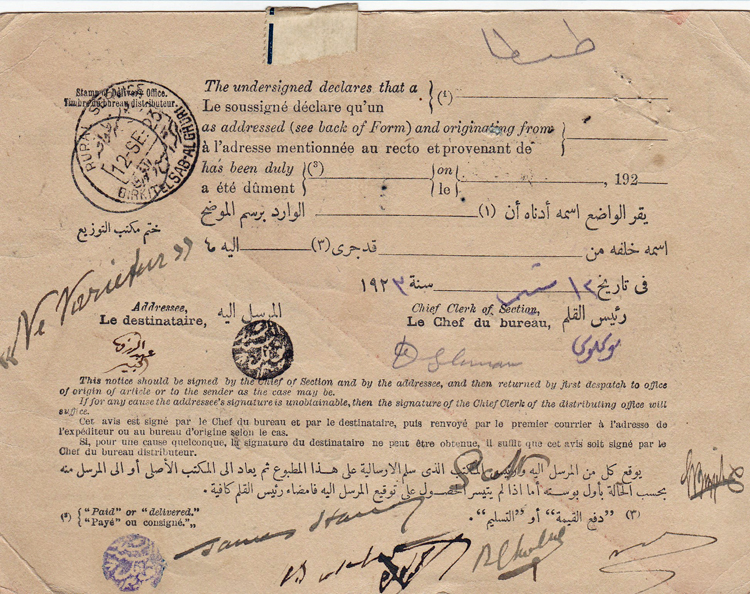 طنطا
Stamp of Delivery Office.
Timbre du bureau distributeur.
RURAL SERVICE
12 SE 23
BIRKIT EL SAB-AL GHURI
The undersigned declares that a
Le soussigné déclare qu'un
(¹)
as addressed (see back of Form) and originating from
à l'adresse mentionnée au recto et provenant de
has been duly
a été dûment
(²)
on
le
, 192
ختم مكتب التوزيع
يقر الواضع اسمه أدناه أن (١) الوارد برسم الموضح
اسمه خلفه من قد جرى (٣) اليه ٦
فى تاريخ ١٢ سبتمبر سنة ١٩٢٣
«Ne Varietur»
Addressee,
Le destinataire,
المرسل اليه
Chief Clerk of Section,
Le Chef du bureau,
رئيس القلم
This notice should be signed by the Chief of Section and by the addressee, and then returned by first despatch to office
of origin of article or to the sender as the case may be.
If for any cause the addressee's signature is unobtainable, then the signature of the Chief Clerk of the distributing office will
suffice.
Cet avis est signé par le Chef du bureau et par le destinataire, puis renvoyé par le premier courrier à l'adresse de
l'expéditeur ou au bureau d'origine selon le cas.
Si, pour une cause quelconque, la signature du destinataire ne peut être obtenue, il suffit que cet avis soit signé par le
Chef du bureau distributeur.
يوقع كل من المرسل اليه ورئيس المكتب الذى سلم الارسالية على هذا المطبوع ثم يعاد الى المكتب الأصلى أو الى المرسل منه
بحسب الحالة بأول بوسته أما اذا لم يتيسر الحصول على توقيع المرسل اليه فامضاء رئيس القلم كافية .
(²) { "Paid" or "delivered."
"Payé" ou consigné."„
(٣) "دفع القيمة" أو "التسليم".
Scott
James